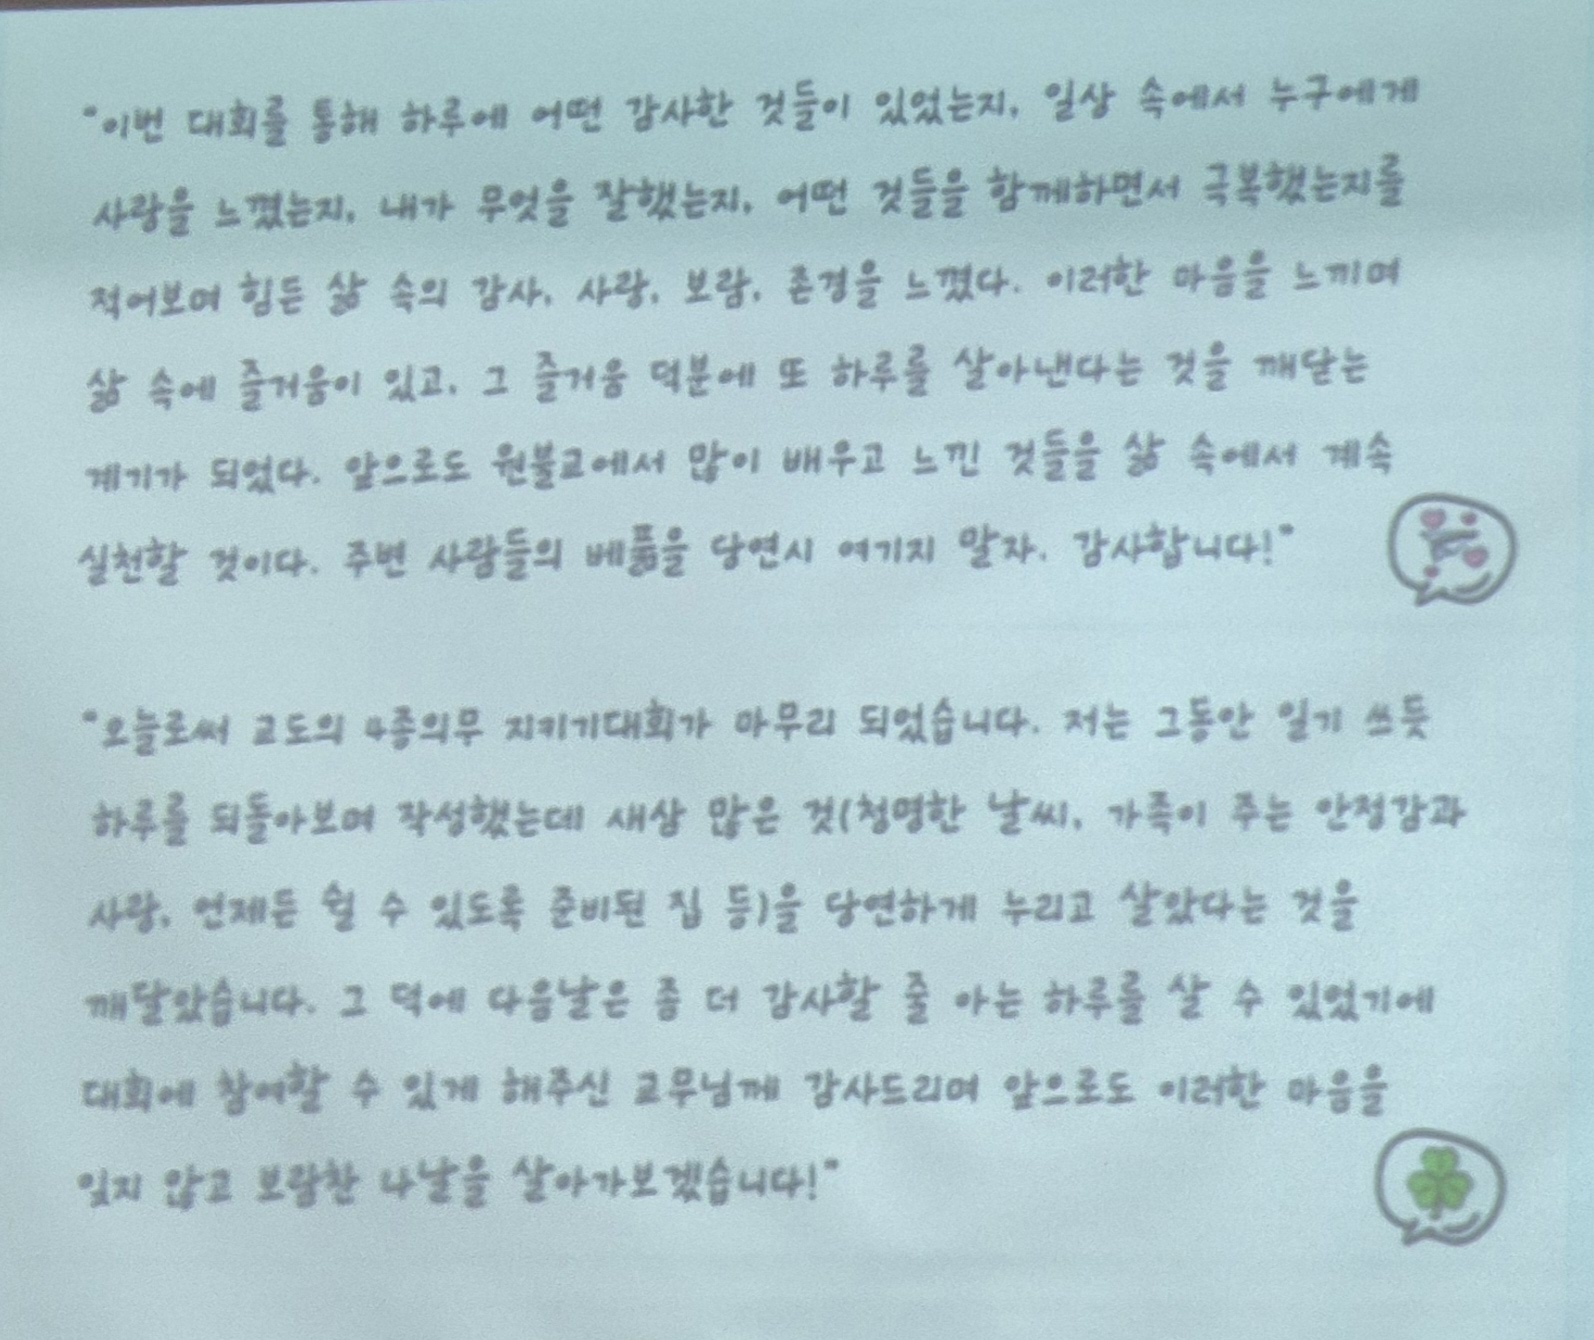 "이번 대회를 통해 하루에 어떤 감사한 것들이 있었는지, 일상 속에서 누구에게
사랑을 느꼈는지, 내가 무엇을 잘했는지, 어떤 것들을 함께하면서 극복했는지를
적어보며 힘든 삶 속의 감사, 사랑, 보람, 존경을 느꼈다. 이러한 마음을 느끼며
삶 속에 즐거움이 있고, 그 즐거움 덕분에 또 하루를 살아낸다는 것을 깨닫는
계기가 되었다. 앞으로도 원불교에서 많이 배우고 느낀 것들을 삶 속에서 계속
실천할 것이다. 주변 사람들의 베풂을 당연시 여기지 말자. 감사합니다!"
"오늘로써 교도의 4종의무 지키기대회가 마무리 되었습니다. 저는 그동안 일기 쓰듯
하루를 되돌아보며 작성했는데 새삼 많은 것(청명한 날씨, 가족이 주는 안정감과
사랑, 언제든 쉴 수 있도록 준비된 집 등)을 당연하게 누리고 살았다는 것을
깨달았습니다. 그 덕에 다음날은 좀 더 감사할 줄 아는 하루를 살 수 있었기에
대회에 참여할 수 있게 해주신 교무님께 감사드리며 앞으로도 이러한 마음을
잊지 않고 보람찬 나날을 살아가보겠습니다!"